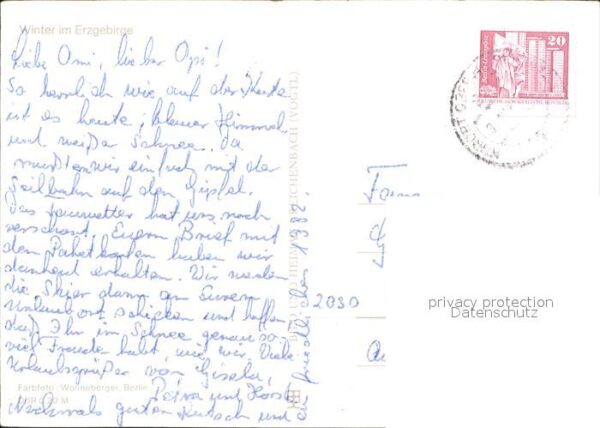 Winter im Erzgebirge
Liebe Omi, lieber Opi!
So herrlich wie auf der Karte
ist es heute, blauer Himmel
und weißer Schnee. Da
mußten wir einfach mit der
Seilbahn auf den Gipfel.
Das Tauwetter hat uns noch
verschont. Euern Brief mit
den Paketkarten haben wir
dankend erhalten. Wir werden
die Skier dann an Euern
Urlaubsort schicken und hoffen
daß Ihr im Schnee genau so
viel Freude habt, wie wir. Viele
Urlaubsgrüße von Gisela,
Petra und Horst
Nochmals guten Rutsch und
ein friedliches 1982.
Farbfoto: Wonneberger, Berlin
REICHENBACH (VOGTL)
20
DEUTSCHE DEMOKRATISCHE REPUBLIK
Fam
2030
privacy protection
Datenschutz